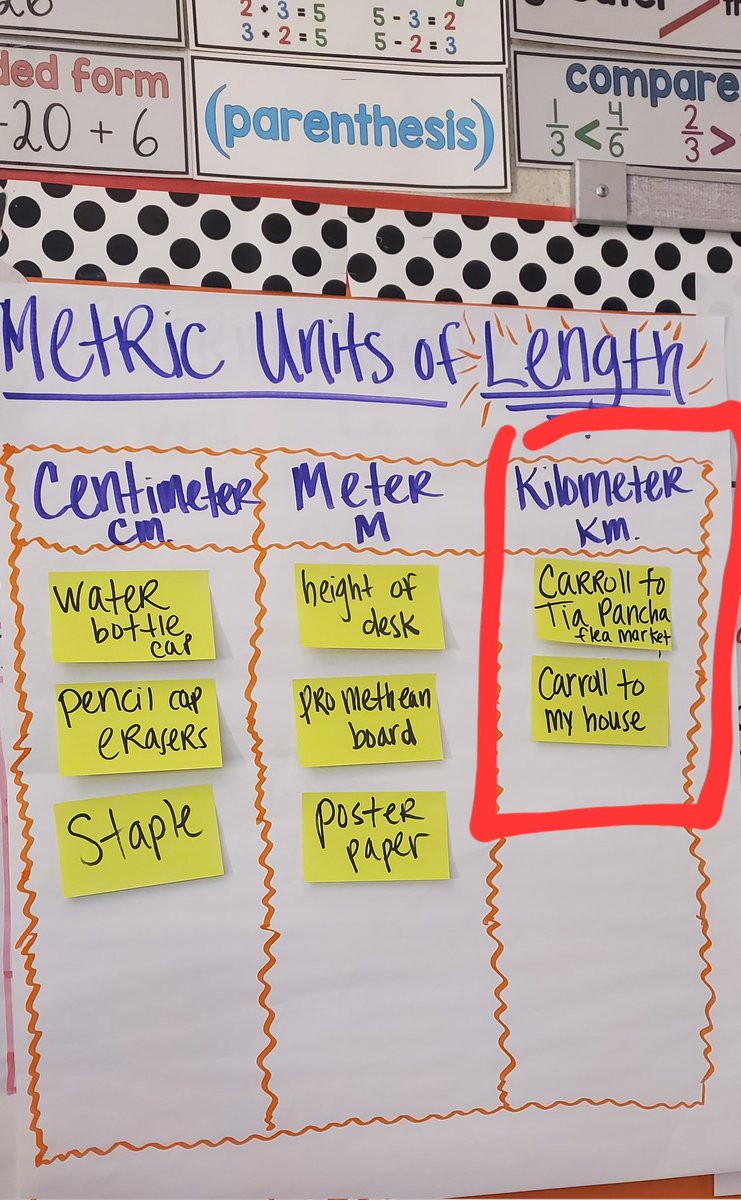 2 + 3 = 5
5 - 3 = 2
3 + 2 = 5
5 - 2 = 3
form
20 + 6
(parenthesis)
compare
1/3 < 4/6
2/3 >
Metric Units of Length
Centimeter
cm.
Meter
M
Kilometer
Km.
Water
bottle
cap
pencil cap
erasers
Staple
height of
desk
promethean
board
poster
paper
Carroll to
Tia Pancha
flea market
Carroll to
my house